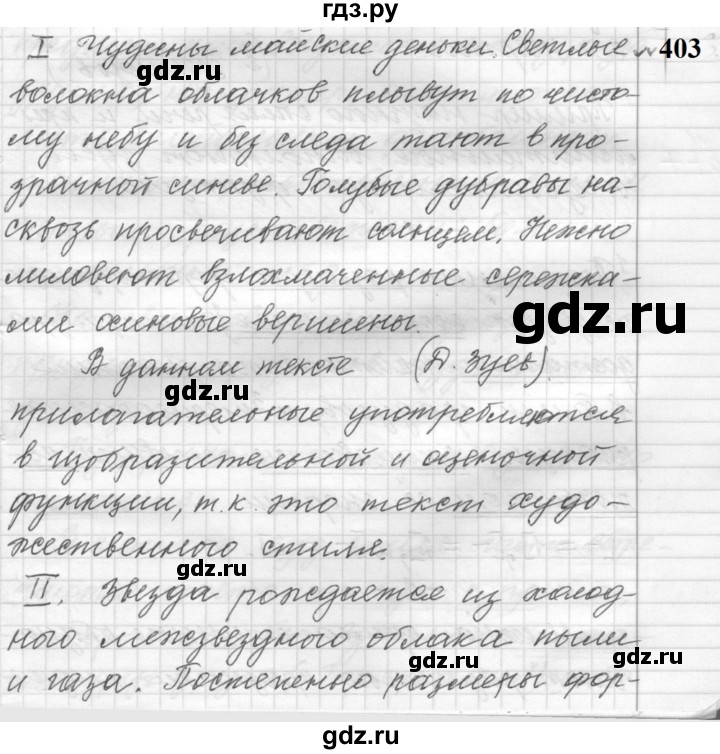 гдз.ру
I Чудесны майские деньки. Светлые
403
gdz.ru
волокна облачков плывут по чисто-
му небу и без следа тают в про-
зрачной синеве. Голубые дубравы на-
сквозь просвечивают солнцем. Нежно
лиловеют взлохмаченные сережка-
gdz.ru
ми осиновые вершины.
В данном тексте (Д. Зуев).
gdz.ru
прилагательные употребляются
в изобразительной и оценочной
функции, т.к. это текст худо-
жественного стиля.
gdz.ru
II. Звезда рождается из холод-
ного межзвездного облака пыли
gdz.ru
gdz.ru
и газа. Постепенно размеры фор-